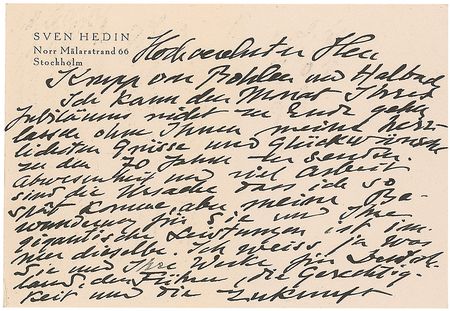 SVEN HEDIN
Norr Mälarstrand 66
Stockholm
Hochverehrter Herr
Krupp von Bohlen und Halbach
Ich kann den Monat Ihres
Jubiläums nicht zu Ende gehen
lassen ohne Ihnen meine herz-
lichsten Grüsse und Glückwünsche
zu den 70 Jahren zu senden.
Abwesenheit und viel Arbeit
sind die Ursache dass ich so
spät komme, aber meine Be-
wunderung für Sie und Ihre
gigantische Leistungen ist im-
mer dieselbe. Ich weiss ja was
Sie und Ihre Werke für Deutsch-
land, den Führer, die Gerechtig-
keit und die Zukunft